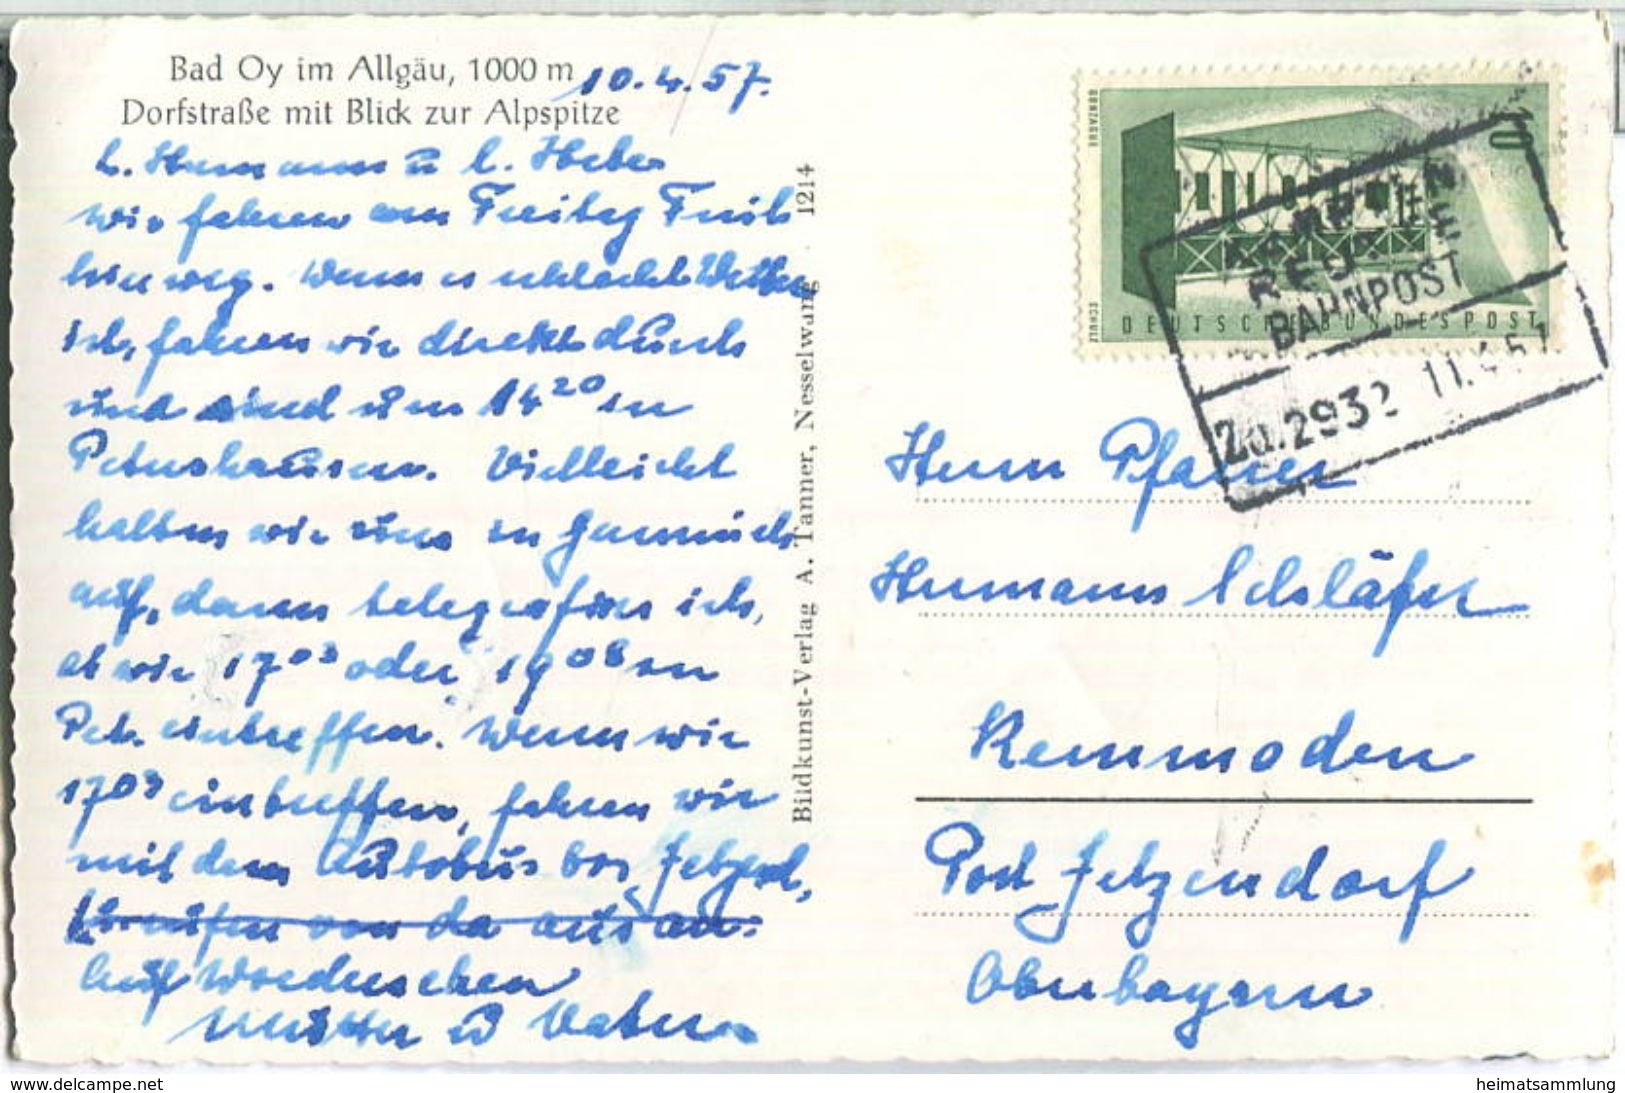 Bad Oy im Allgäu, 1000 m
Dorfstraße mit Blick zur Alpspitze
10.4.57.
L. Hermann u l.
wir fahren am Freitag Früh
hin weg. Wenn es schlecht Wetter
ist, fahren wir direkt durch
und sind um 14 20 in
Petershausen. Vielleicht
halten wir uns in Garmisch
auf, dann telegrafier ich,
ob wir 17 03 oder 19 08 in
Pet. eintreffen. Wenn wir
17 03 eintreffen, fahren wir
mit dem Autobus bis Jetzend,
von da aus an.
Auf Wiedersehen
Mutter u Vater.
Bildkunst-Verlag A. Tanner, Nesselwang 1214
SCHULZ
GONZAGUE
10
DEUTSCHE BUNDESPOST
KEMPTEN
REUTTE
BAHNPOST
Zg.2932 11.4.57
Herrn Pfarrer
Hermann Schläfer
Remmoden
Post Jetzendorf
Oberbayern
www.delcampe.net
heimatsammlung